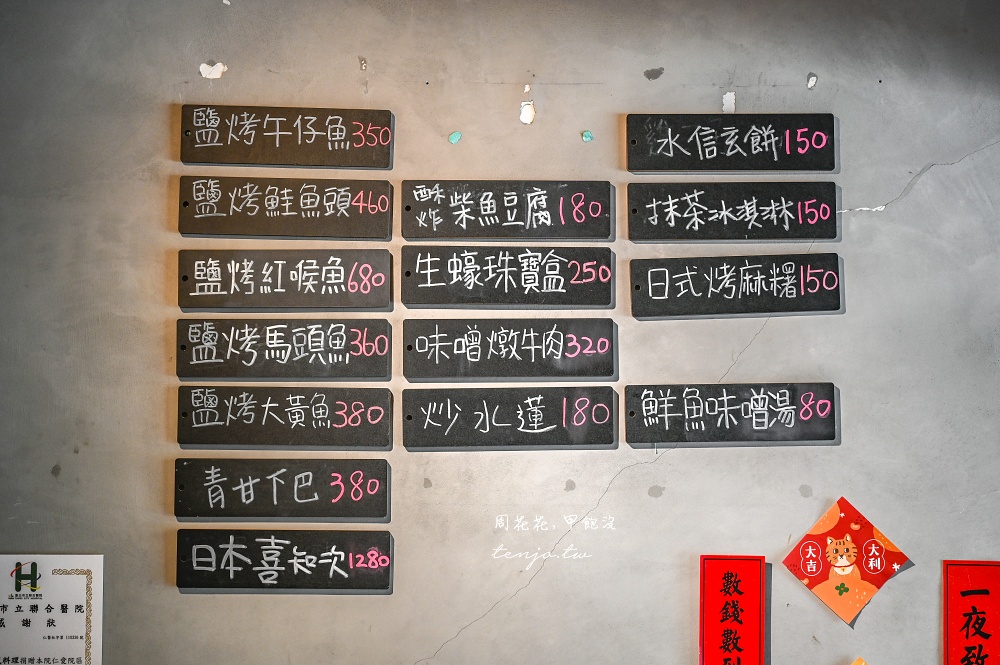 鹽烤午仔魚350
鹽烤鮭魚頭460
鹽烤紅喉魚680
鹽烤馬頭魚360
鹽烤大黃魚380
青甘下巴380
日本喜知次1280
酥炸柴魚豆腐180
生蠔珠寶盒250
味噌燉牛肉320
炒水蓮180
水信玄餅150
抹茶冰淇淋150
日式烤麻糬150
鮮魚味噌湯80
周花花,甲飽沒
tenjo.tw
市立聯合醫院
感謝狀
料理捐贈本院仁愛院區
大吉
大利
數錢數到
一夜致